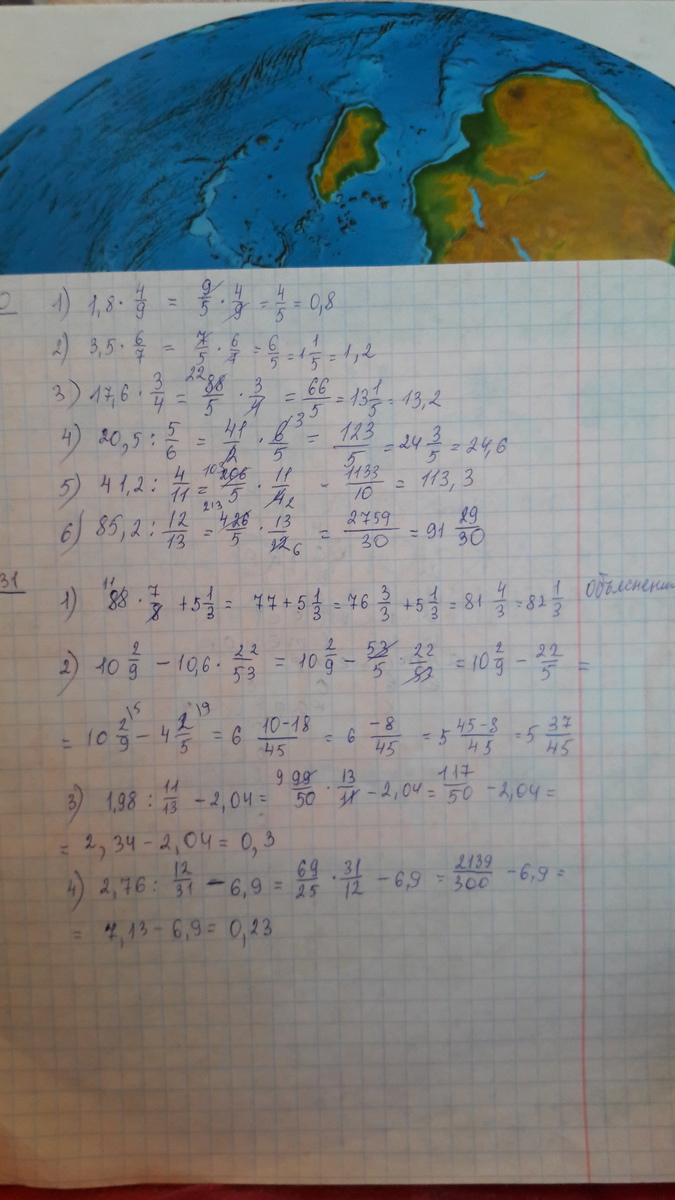 0 1) 1,8 · 4/9 = 9/5 · 4/9 = 4/5 = 0,8
2) 3,5 · 6/7 = 7/5 · 6/7 = 6/5 = 1 1/5 = 1,2
3) 17,6 · 3/4 = 22 88/5 · 3/4 = 66/5 = 13 1/5 = 13,2
4) 20,5 : 5/6 = 41/2 · 6/5 3 = 123/5 = 24 3/5 = 24,6
5) 41,2 : 4/11 = 103 206/5 · 11/4 2 - 1133/10 = 113,3
6) 85,2 : 12/13 = 213 426/5 · 13/12 6 = 2759/30 = 91 29/30
31 1) 11 88 · 7/8 + 5 1/3 = 77 + 5 1/3 = 76 3/3 + 5 1/3 = 81 4/3 = 82 1/3 Объяснени
2) 10 2/9 - 10,6 · 22/53 = 10 2/9 - 53/5 · 22/53 = 10 2/9 - 22/5 =
= 10 2/9 \5 - 4 2/5 \9 = 6 10-18/45 = 6 -8/45 = 5 45-8/45 = 5 37/45
3) 1,98 : 11/13 - 2,04 = 9 99/50 · 13/11 - 2,04 = 117/50 - 2,04 =
= 2,34 - 2,04 = 0,3
4) 2,76 : 12/31 - 6,9 = 69/25 · 31/12 - 6,9 = 2139/300 - 6,9 =
= 7,13 - 6,9 = 0,23